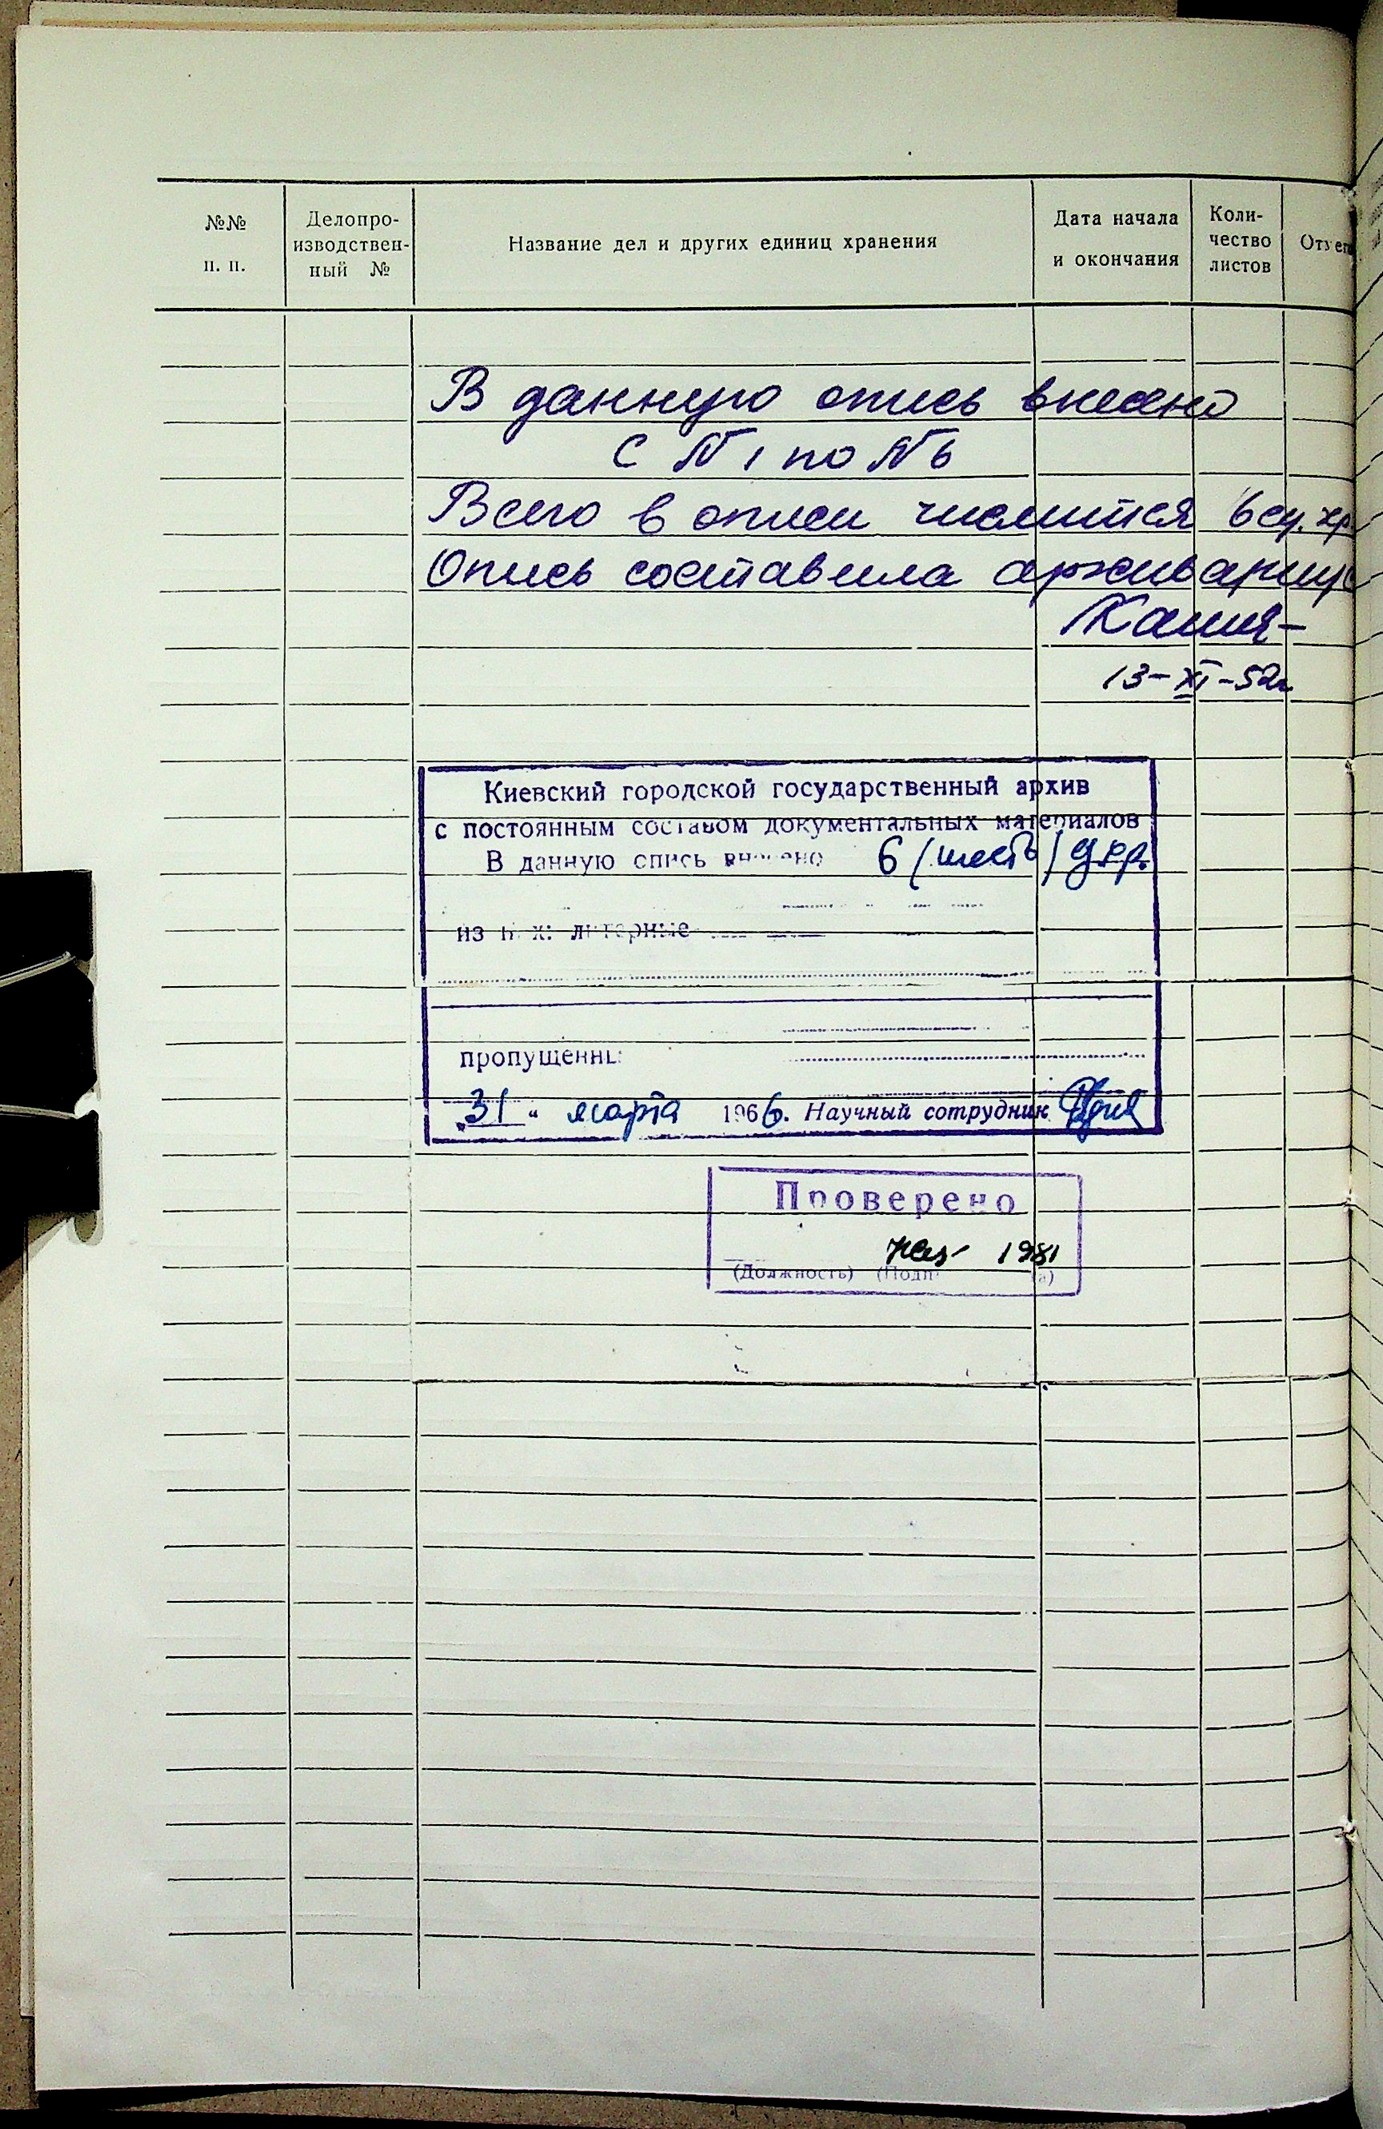 №№ п. п.
Делопро-
изводствен-
ный №
Название дел и других единиц хранения
Дата начала
и окончания
Коли-
чество
листов
В данную опись внесено
с № 1 по № 6
Всего в описи числится 6 ед. хр.
Опись составила архивариус
13-XI-52г
Киевский городской государственный архив
с постоянным составом документальных материалов
В данную опись внесено 6 (шесть)
из них: литерные
пропущенны
"31" марта 1966. Научный сотрудник
Проверено
1981
(Должность)